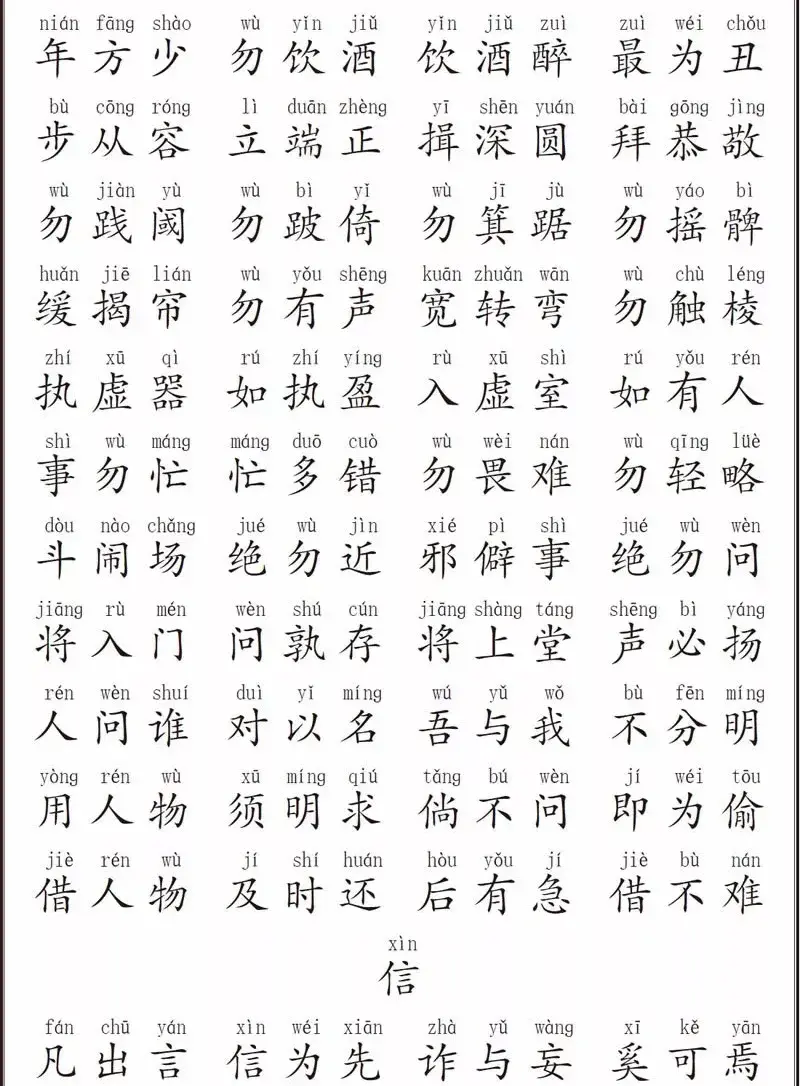 nián fāng shào wù yǐn jiǔ yǐn jiǔ zuì zuì wéi chǒu
年方少 勿饮酒 饮酒醉 最为丑
bù cōng róng lì duān zhèng yī shēn yuán bài gōng jìng
步从容 立端正 揖深圆 拜恭敬
wù jiàn yù wù bì yǐ wù jī jù wù yáo bì
勿践阈 勿跛倚 勿箕踞 勿摇髀
huǎn jiē lián wù yǒu shēng kuān zhuǎn wān wù chù léng
缓揭帘 勿有声 宽转弯 勿触棱
zhí xū qì rú zhí yíng rù xū shì rú yǒu rén
执虚器 如执盈 入虚室 如有人
shì wù máng máng duō cuò wù wèi nán wù qīng lüè
事勿忙 忙多错 勿畏难 勿轻略
dòu nào chǎng jué wù jìn xié pì shì jué wù wèn
斗闹场 绝勿近 邪僻事 绝勿问
jiāng rù mén wèn shú cún jiāng shàng táng shēng bì yáng
将入门 问孰存 将上堂 声必扬
rén wèn shuí duì yǐ míng wú yǔ wǒ bù fēn míng
人问谁 对以名 吾与我 不分明
yòng rén wù xū míng qiú tǎng bú wèn jí wéi tōu
用人物 须明求 倘不问 即为偷
jiè rén wù jí shí huán hòu yǒu jí jiè bù nán
借人物 及时还 后有急 借不难
xìn
信
fán chū yán xìn wéi xiān zhà yǔ wàng xī kě yān
凡出言 信为先 诈与妄 奚可焉